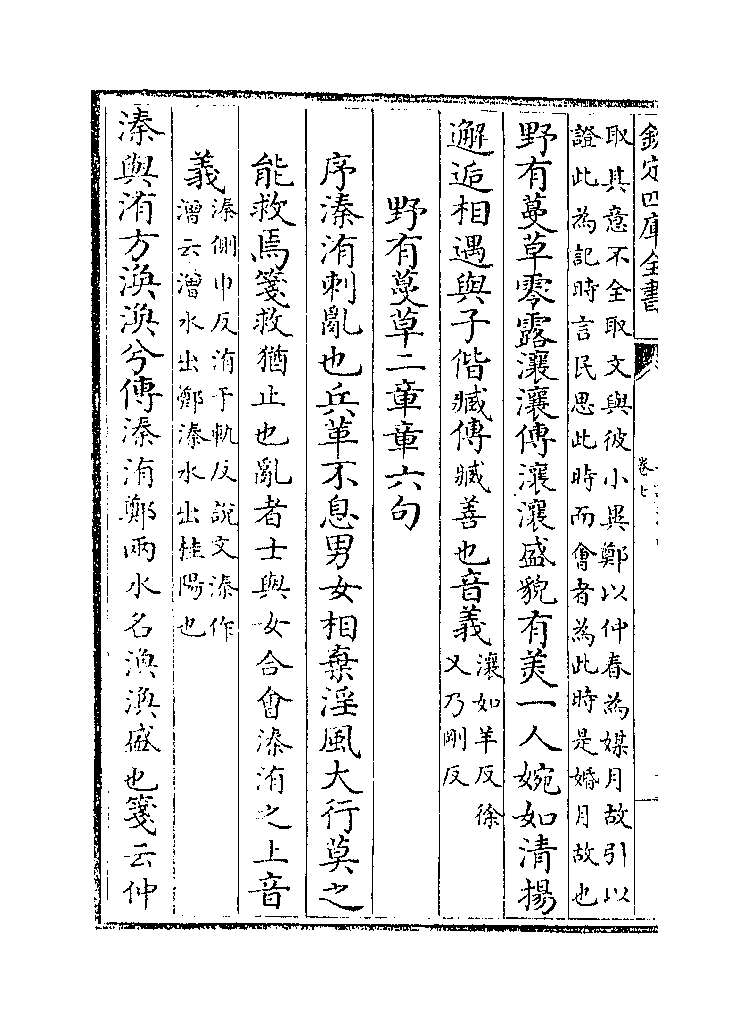 欽定四庫全書
卷七
取其意不全取文與彼小異鄭以仲春為媒月故引以
證此為記時言民思此時而會者為此時是婚月故也
野有蔓草零露瀼瀼傳瀼瀼盛貌有美一人婉如清揚
邂逅相遇與子偕臧傳臧善也音義瀼如羊反徐
又乃剛反
野有蔓草二章章六句
序溱洧刺亂也兵革不息男女相棄淫風大行莫之
能救焉箋救猶止也亂者士與女合會溱洧之上音
義溱側巾反洧于軌反說文溱作
潧云潧水出鄭溱水出桂陽也
溱與洧方渙渙兮傳溱洧鄭兩水名渙渙盛也箋云仲